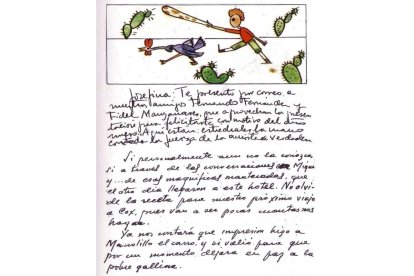 Josefina: Te presento por correo, a
nuestros amigos Fernando Fernández y
Fidel Manzanares, que aprovechan la presen
tación para felicitarte con motivo del año
nuevo. Aquí están: estréchales la mano
con toda la fuerza de la amistad verdadera
Si personalmente aun no la conozco,
si a través de las conversaciones de Miguel
y... de esas magníficas mantecadas, que
el otro día llegaron a este hotel. No olvi-
de la receta para nuestro próximo viaje
a Cox, pues van a ser pocas cuantas nos
haga.
Ya nos contará que impresión hizo a
Manolillo el carro, y si valió para que
por un momento dejara en paz a la
pobre gallina.